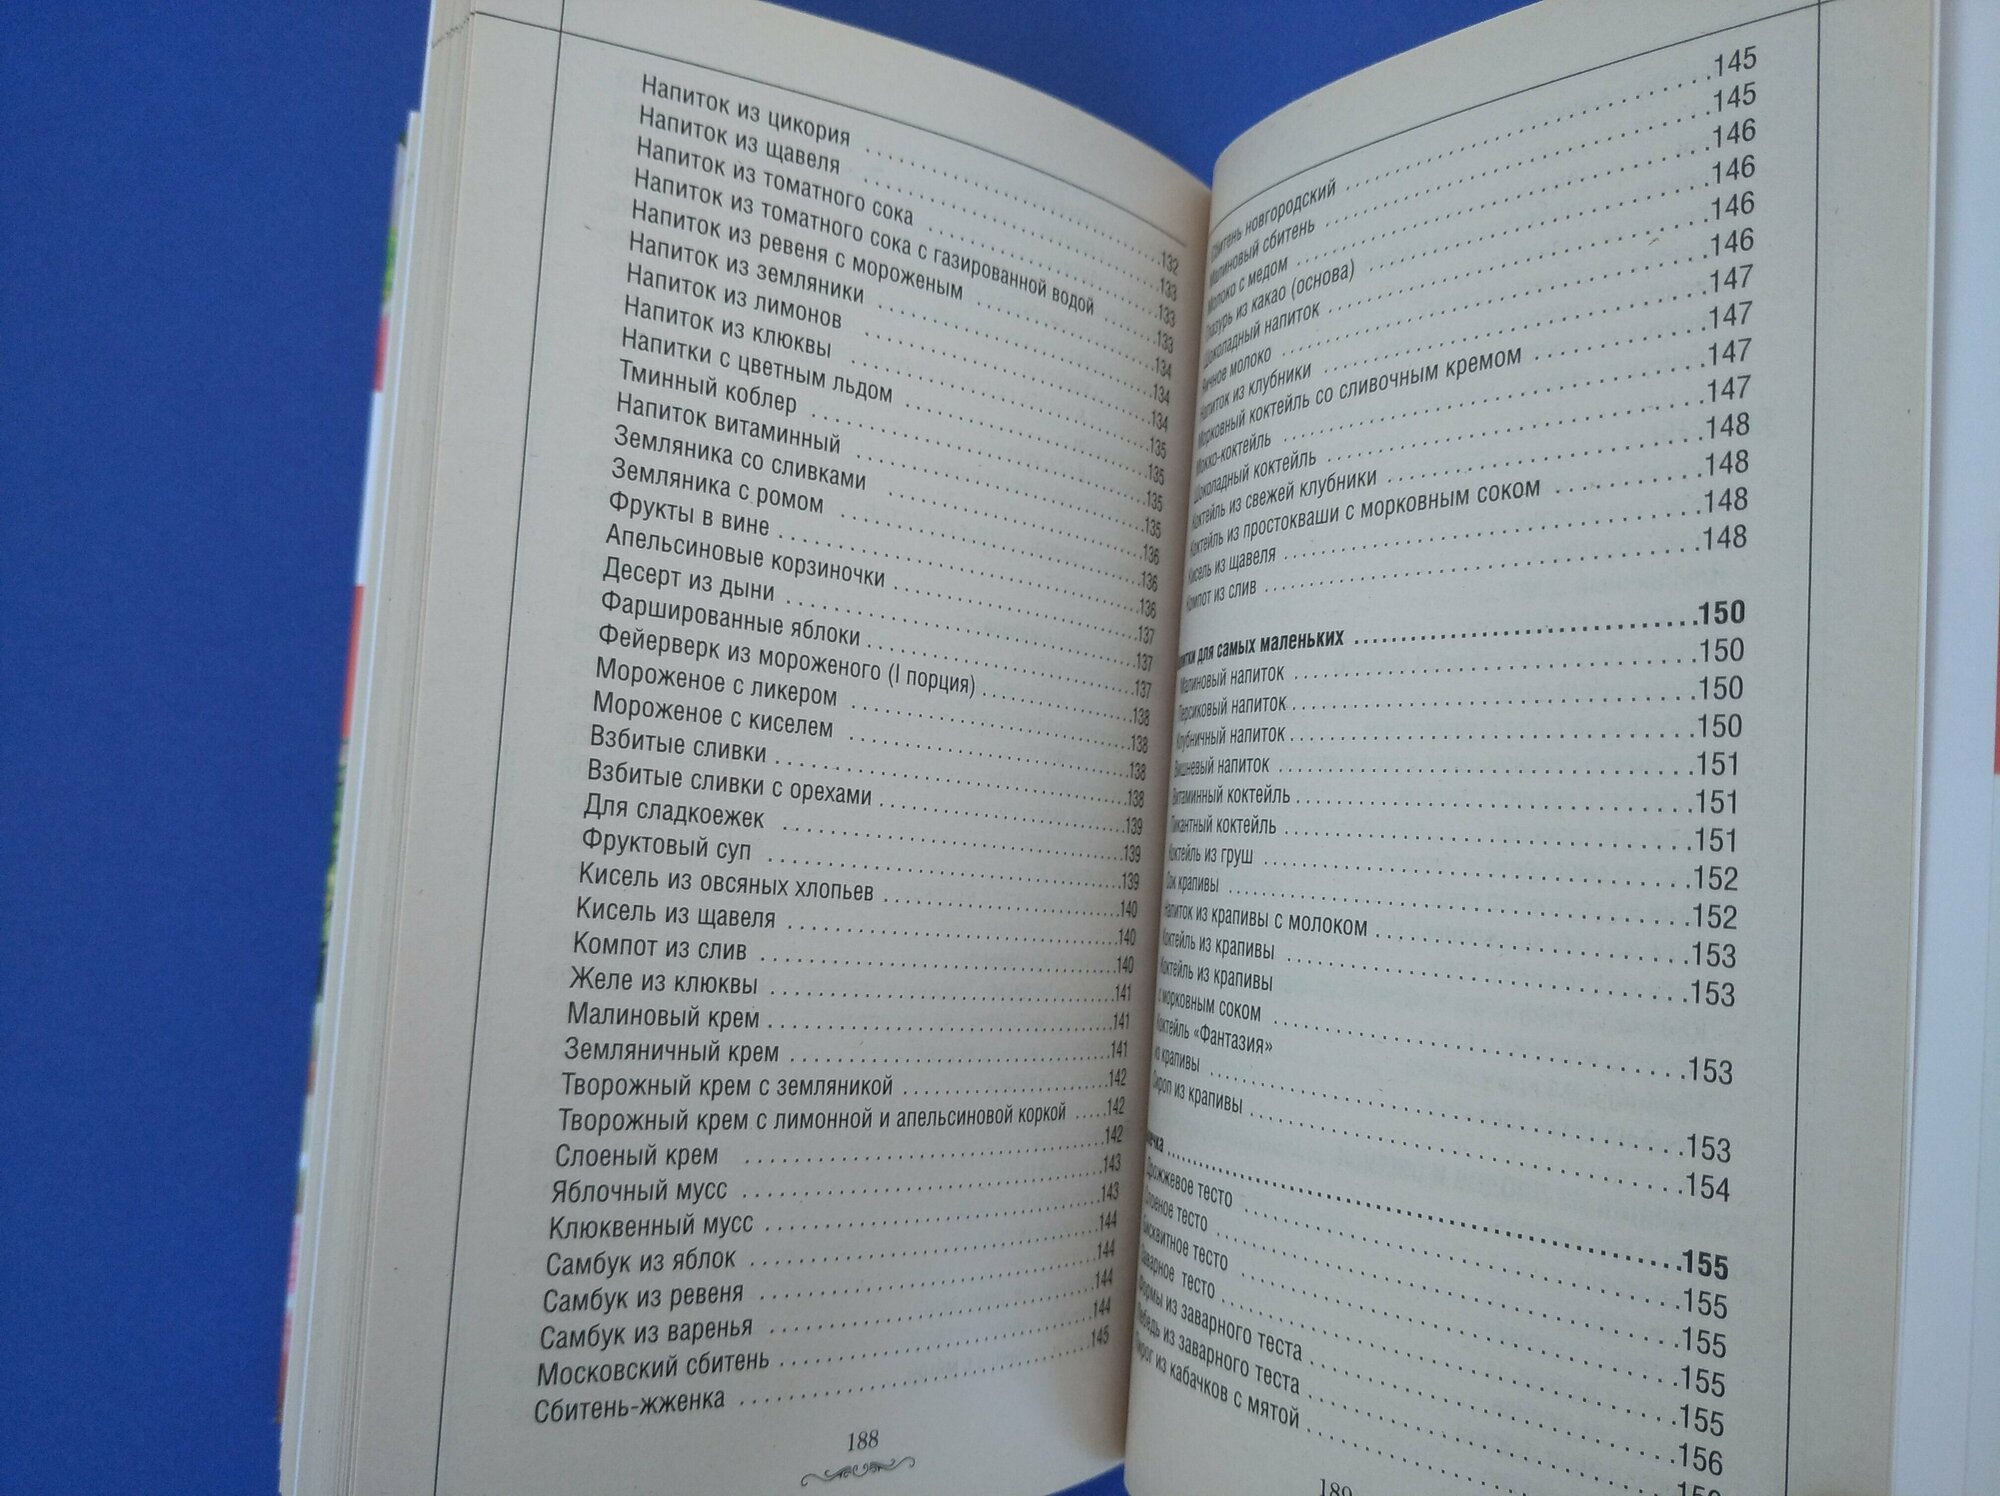 Напиток из цикория ........ 132
Напиток из щавеля ........ 133
Напиток из томатного сока ........ 133
Напиток из томатного сока с газированной водой ........ 133
Напиток из ревеня с мороженым ........ 134
Напиток из земляники ........ 134
Напиток из лимонов ........ 134
Напиток из клюквы ........ 135
Напитки с цветным льдом ........ 135
Тминный коблер ........ 135
Напиток витаминный ........ 135
Земляника со сливками ........ 136
Земляника с ромом ........ 136
Фрукты в вине ........ 136
Апельсиновые корзиночки ........ 137
Десерт из дыни ........ 137
Фаршированные яблоки ........ 137
Фейерверк из мороженого (I порция) ........ 138
Мороженое с ликером ........ 138
Мороженое с киселем ........ 138
Взбитые сливки ........ 138
Взбитые сливки с орехами ........ 139
Для сладкоежек ........ 139
Фруктовый суп ........ 139
Кисель из овсяных хлопьев ........ 140
Кисель из щавеля ........ 140
Компот из слив ........ 140
Желе из клюквы ........ 141
Малиновый крем ........ 141
Земляничный крем ........ 141
Творожный крем с земляникой ........ 142
Творожный крем с лимонной и апельсиновой коркой ..... 142
Слоеный крем ........ 142
Яблочный мусс ........ 143
Клюквенный мусс ........ 143
Самбук из яблок ........ 144
Самбук из ревеня ........ 144
Самбук из варенья ........ 144
Московский сбитень ........ 144
Сбитень-жженка ........ 145
188
Сбитень новгородский ........ 145
Малиновый сбитень ........ 145
Молоко с медом ........ 146
Глазурь из какао (основа) ........ 146
Шоколадный напиток ........ 146
Яичное молоко ........ 146
Напиток из клубники ........ 147
Морковный коктейль со сливочным кремом ........ 147
Мокко-коктейль ........ 147
Шоколадный коктейль ........ 147
Коктейль из свежей клубники ........ 148
Коктейль из простокваши с морковным соком ........ 148
Кисель из щавеля ........ 148
Компот из слив ........ 148
для самых маленьких ........ 150
Малиновый напиток ........ 150
Персиковый напиток ........ 150
Клубничный напиток ........ 150
Вишневый напиток ........ 151
Витаминный коктейль ........ 151
Пикантный коктейль ........ 151
Коктейль из груш ........ 152
Сок крапивы ........ 152
Напиток из крапивы с молоком ........ 153
Коктейль из крапивы ........ 153
Коктейль из крапивы
с морковным соком ........ 153
Коктейль «Фантазия»
из крапивы ........ 153
Сироп из крапивы ........ 154
........ 155
Дрожжевое тесто ........ 155
Слоеное тесто ........ 155
Бисквитное тесто ........ 155
Заварное тесто ........ 155
Формы из заварного теста ........ 156
Лебедь из заварного теста
Пирог из кабачков с мятой
189